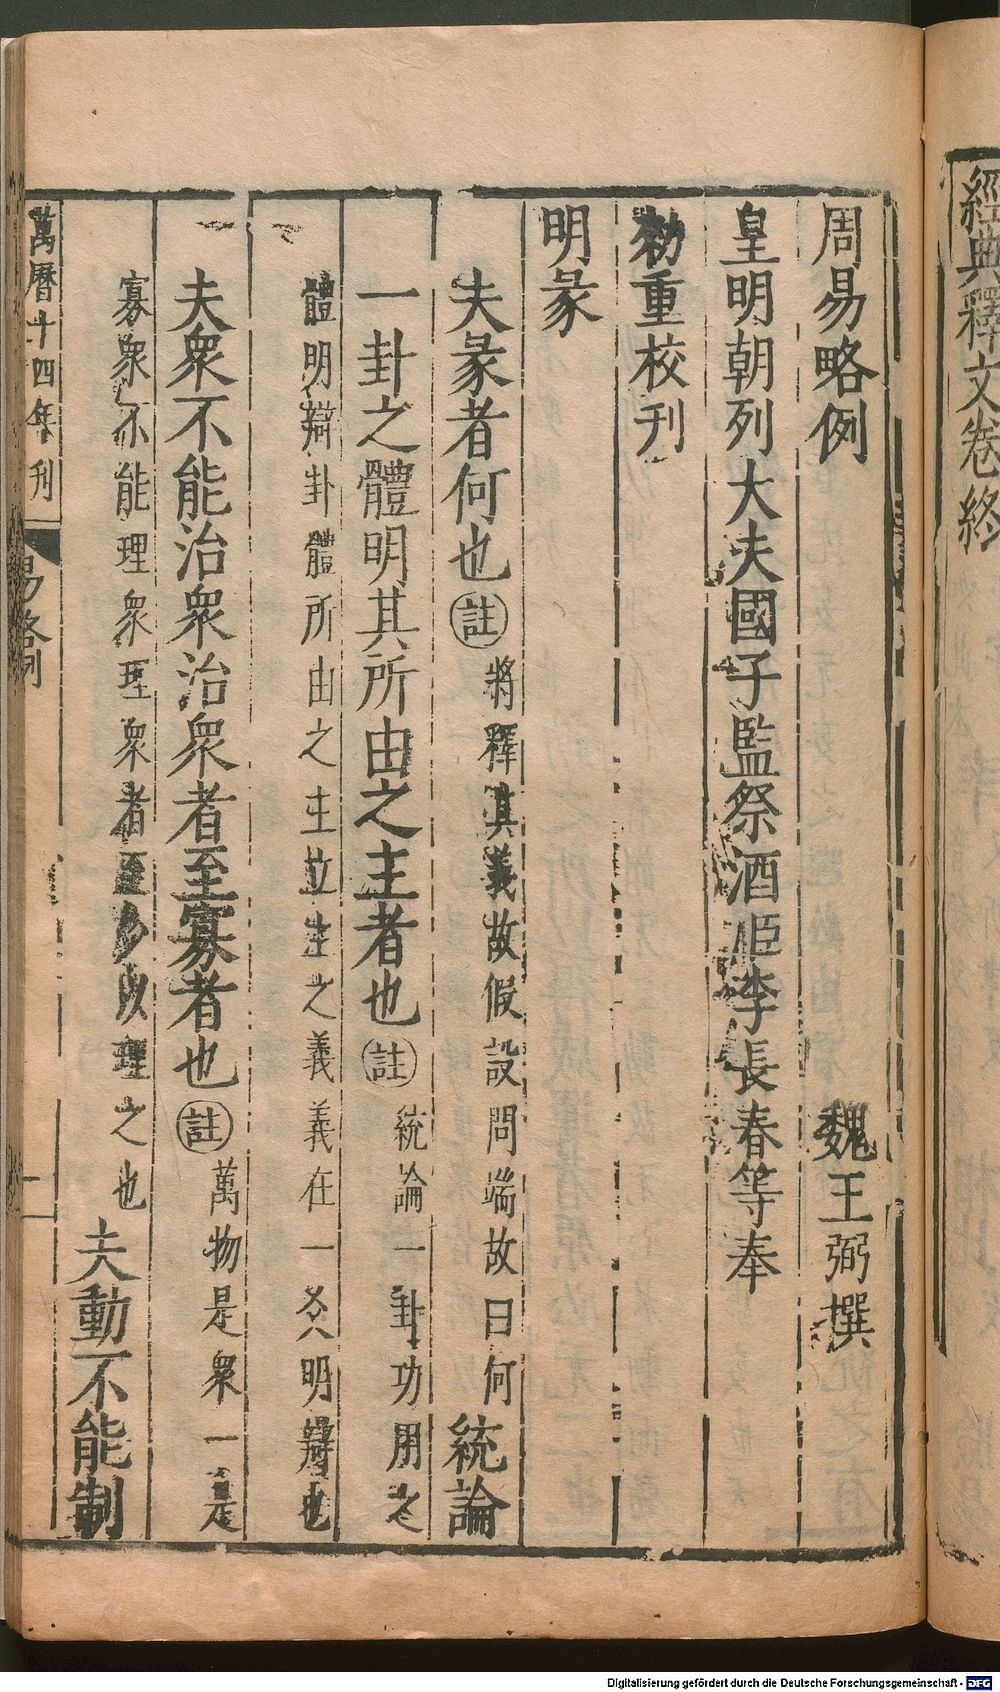 經典釋文卷終
周易略例
魏王弼撰
皇明朝列大夫國子監祭酒臣李長春等奉
勑重校刊
明彖
夫彖者何也註將釋其義故假設問端故曰何統論
一卦之體明其所由之主者也註統論一卦功用之
體明辯卦體所由之主立主之義義在一爻明辯也
夫衆不能治衆治衆者至寡者也註萬物是衆一是
寡衆不能理衆理衆者至少以理之也夫動不能制
萬曆十四年刊
易略例
一
Digitalisierung gefördert durch die Deutsche Forschungsgemeinschaft - DFG